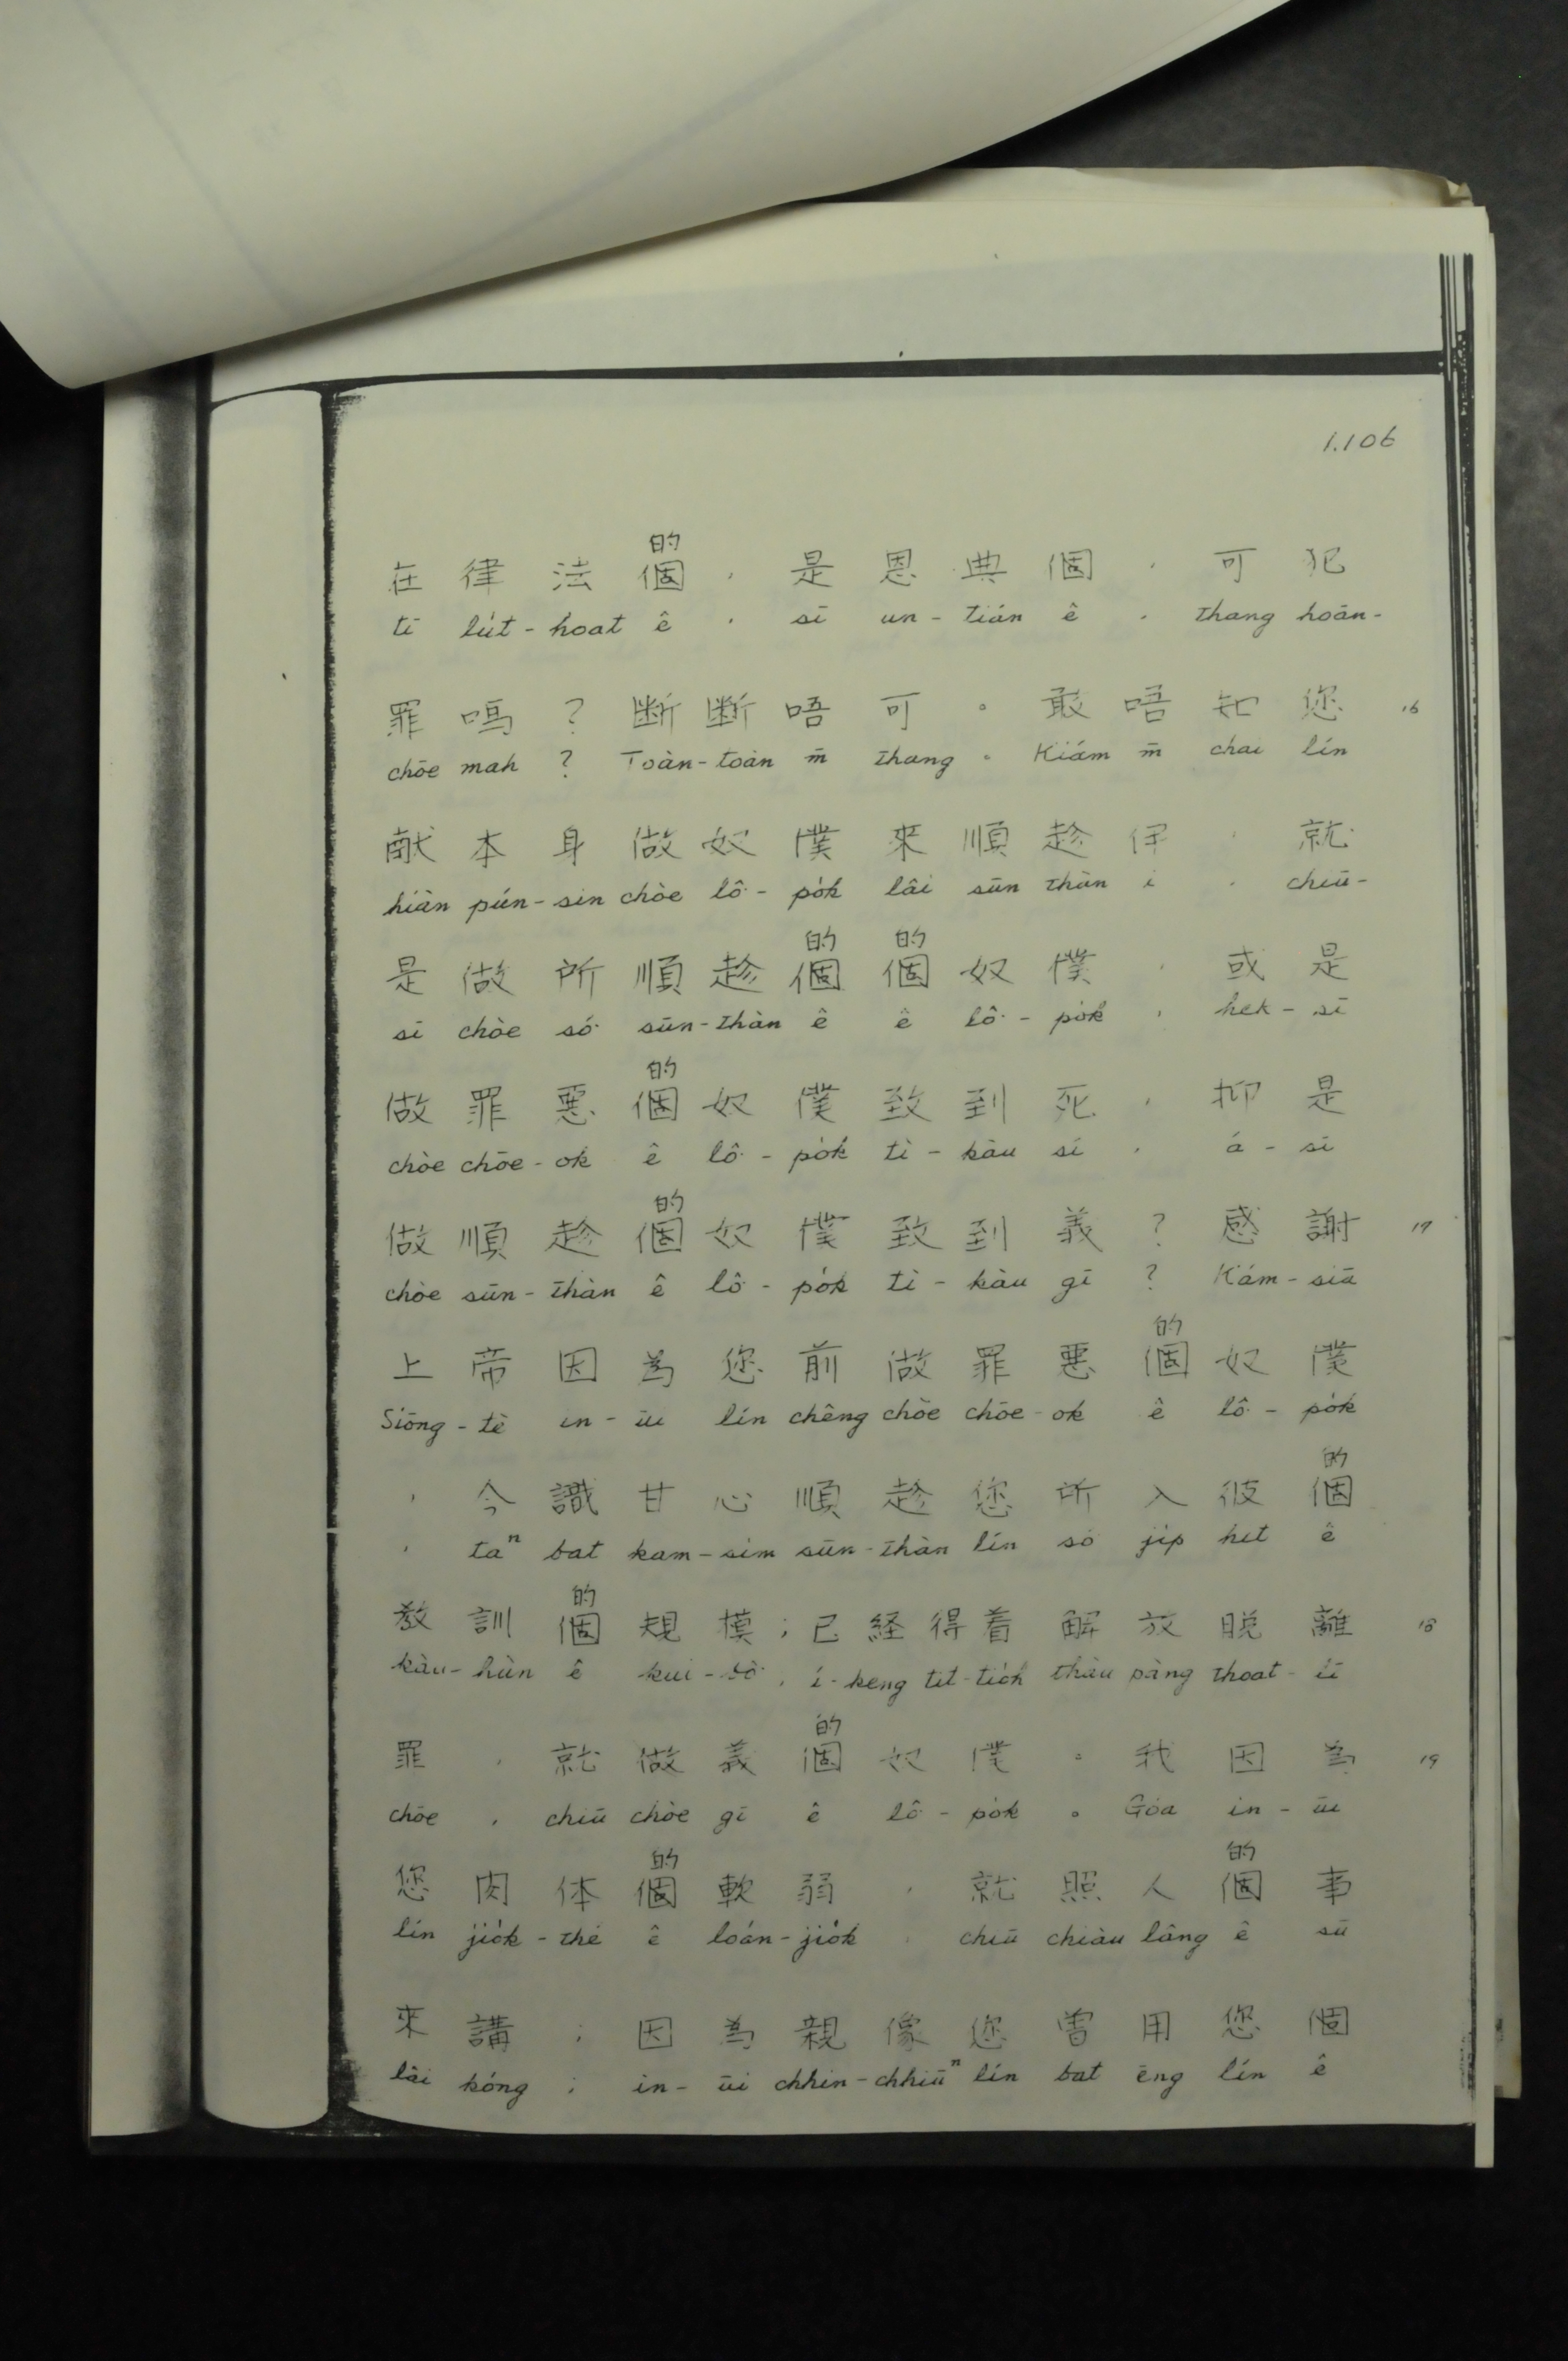 1.106
的
在律法個,是恩典個,可犯
tī lu̍t-hoat ê , sī un-tián ê , thang hoān-
罪嗎?断断唔可。敢唔知您 16
chōe mah ? Toàn-toàn m̄ thang 。 Kiám m̄ chai lín
献本身做奴僕來順趁伊,就
hiàn pún-sin chòe lô͘-po̍k lâi sūn thàn i , chiū-
的 的
是做所順趁個個奴僕,或是
sī chòe só͘ sūn-thàn ê ê lô͘-po̍k , hek-sī
的
做罪悪個奴僕致到死,抑是
chòe chōe-ok ê lô͘-po̍k tì-kàu sí , á-sī
的
做順趁個奴僕致到義?感謝 17
chòe sūn-thàn ê lô͘-po̍k tì-kàu gī ? Kám-siā
的
上帝因為您前做罪悪個奴僕
Siōng-tè in-ūi lín chêng chòe chōe-ok ê lô͘-po̍k
的
,今識甘心順趁您所入彼個
, taⁿ bat kam-sim sūn-thàn lín só͘ ji̍p hit ê
的
教訓個規模;已経得着解放脱離 18
kàu-hùn ê kui-bô͘ , í-keng tit-tio̍h tháu pàng thoat-lī
的
罪,就做義個奴僕。我因為 19
chōe , chiū chòe gī ê lô͘-po̍k 。 Góa in-ūi
的 的
您肉体個軟弱,就照人個事
lín jio̍k-thé ê loán-jio̍k , chiū chiàu lâng ê sū
來講;因為親像您曽用您個
lâi kóng ; in-ūi chhin-chhiūⁿ lín bat ēng lín ê